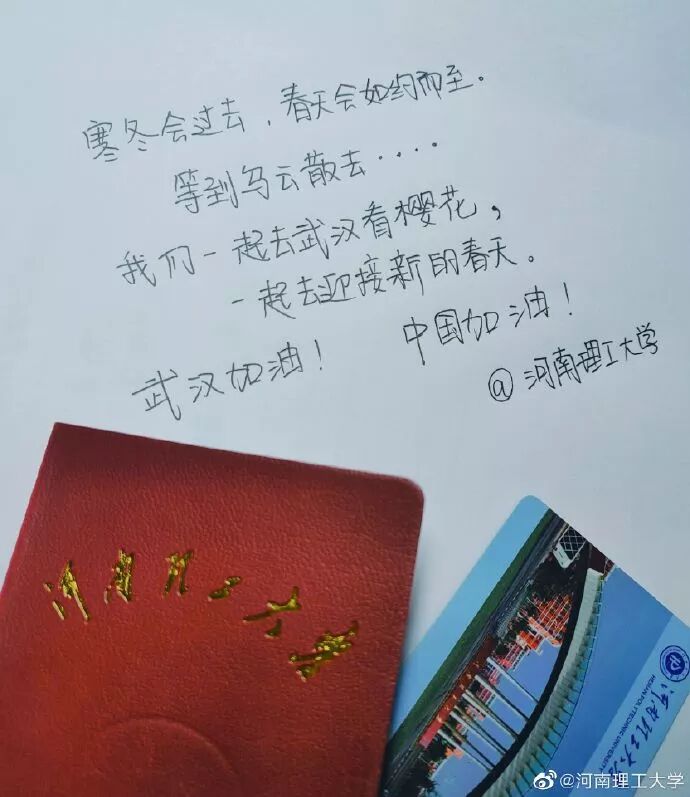 寒冬会过去，春天会如约而至.
等到乌云散去····.
我们一起去武汉看樱花，
一起去迎接新的春天。
武汉加油！ 中国加油！
@河南理工大学
河南理工大学
河南理工大学
HENAN POLYTECHNIC UNIVERSITY
@河南理工大学